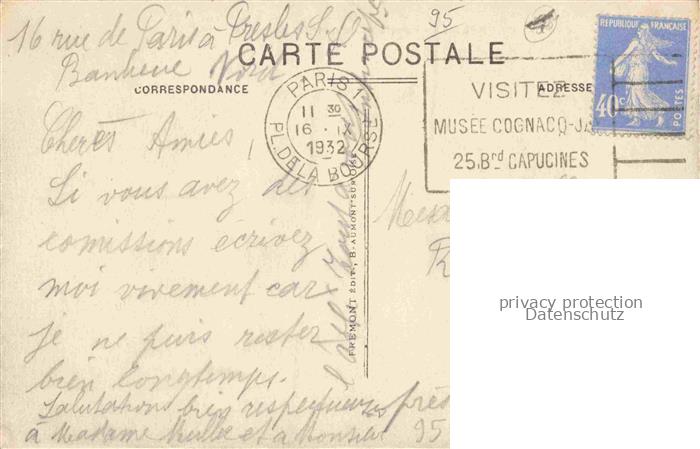 16 rue de Paris à Presles S.O
Banlieue Nord
95
CARTE POSTALE
CORRESPONDANCE
ADRESSE
PARIS 1
11 30
16 · IX
1932
PL. DE LA BOURSE
VISITEZ
MUSÉE COGNACQ-JA
25.Bd CAPUCINES
RÉPUBLIQUE FRANÇAISE
40c
POSTES
Cheres Amies,
Si vous avez des
comissions écrivez
moi vivement car
je ne puis rester
bien longtemps.
Salutations bien respectueuses
à Madame et a Monsieur
près
95
FRÉMONT ÉDIT., BEAUMONT-SUR-OISE
privacy protection
Datenschutz